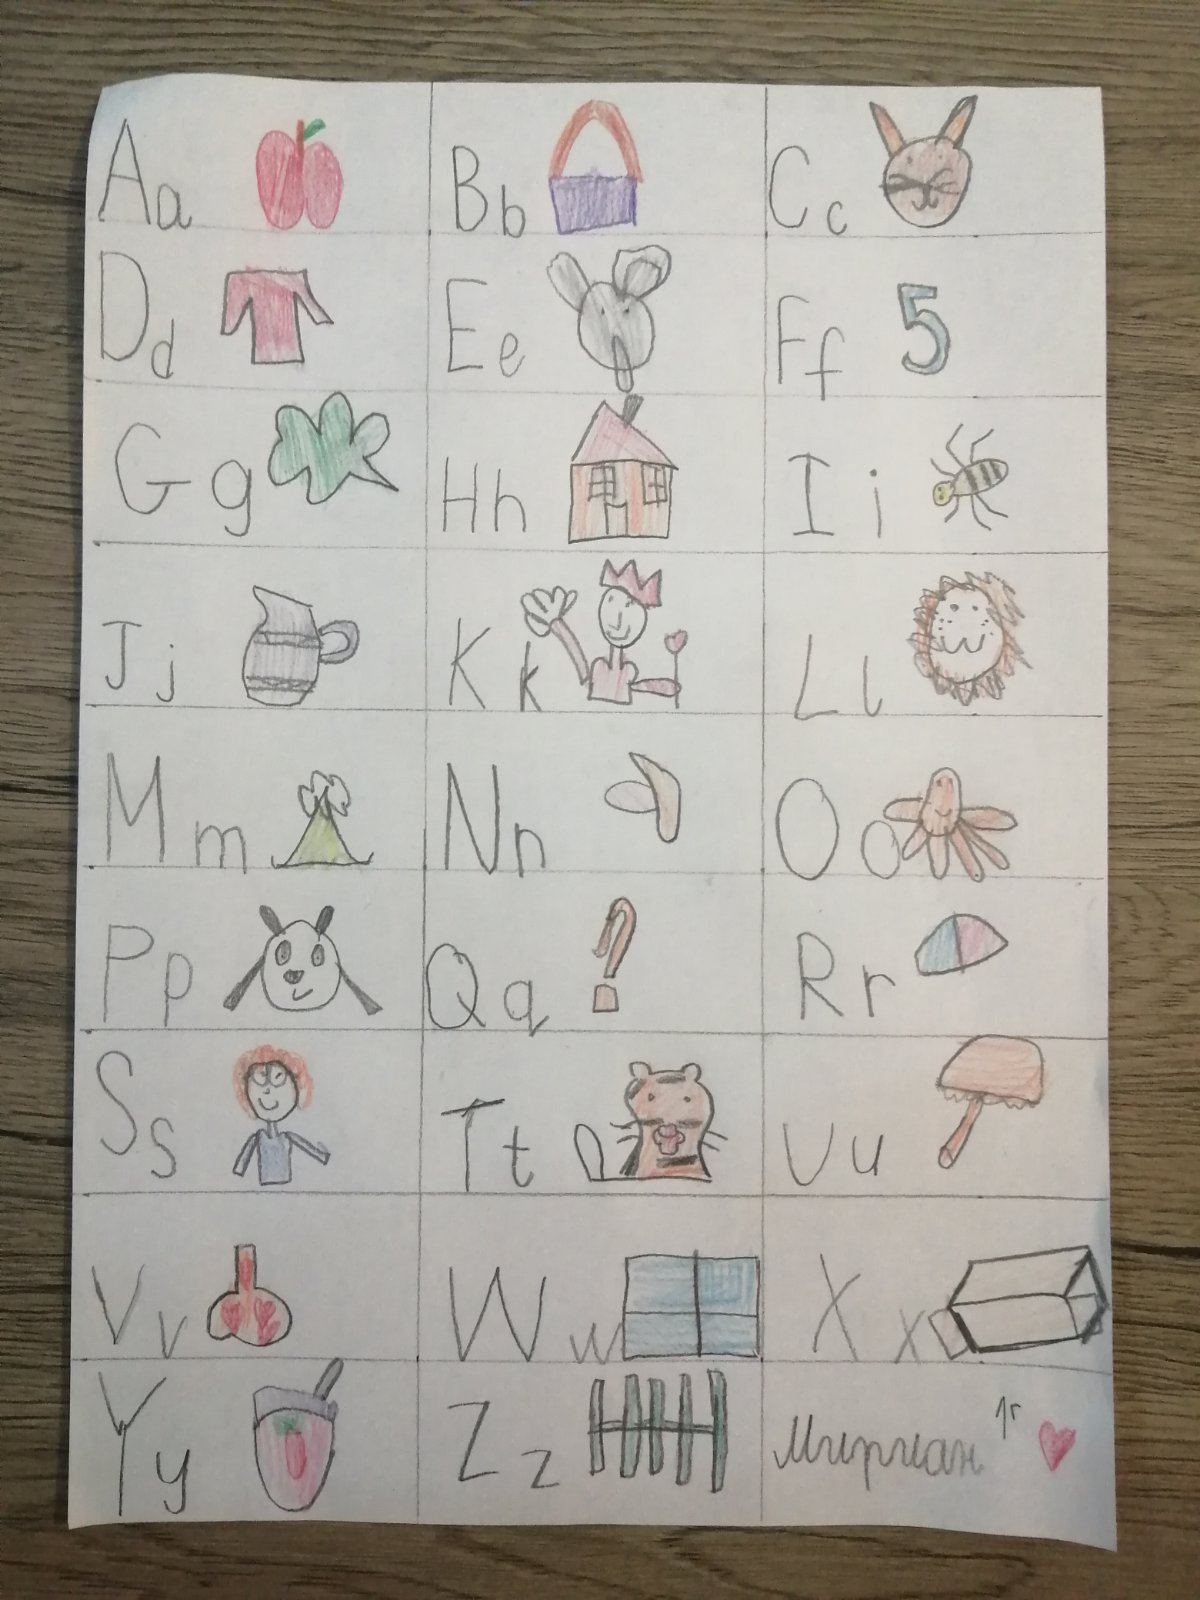 Aa Bb Cc
Dd Ee Ff 5
Gg Hh Ii
Jj Kk Ll
Mm Nn Oo
Pp Qq ? Rr
Ss Tt Uu
Vv Ww Xx
Yy Zz Мириан 1г